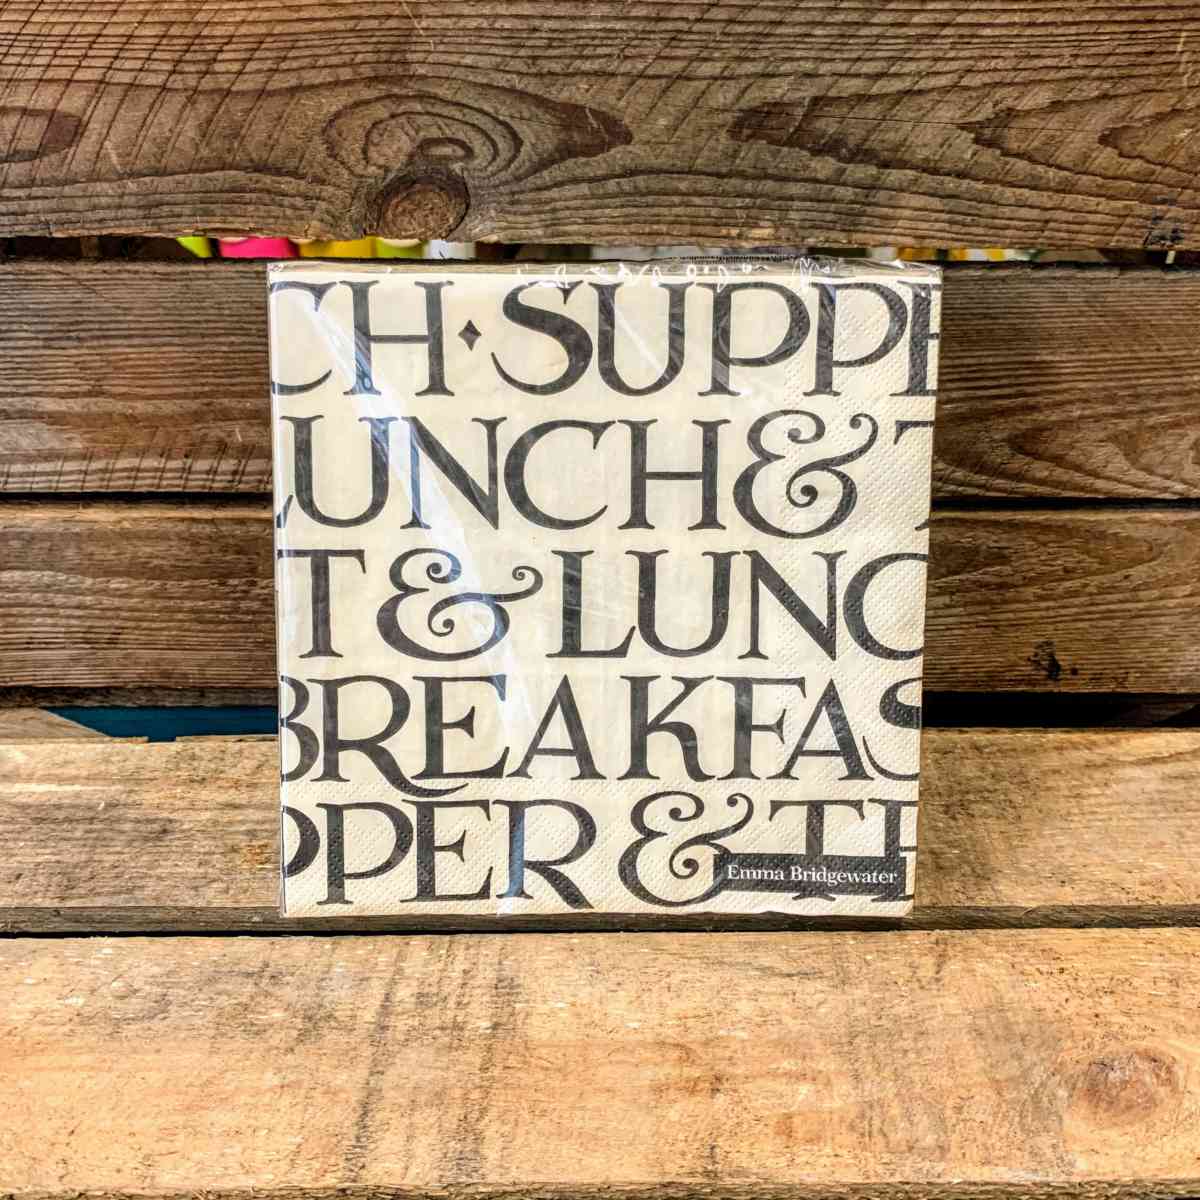 CH·SUPPE
LUNCH & T
T & LUNC
BREAKFAS
PPER & TE
Emma Bridgewater